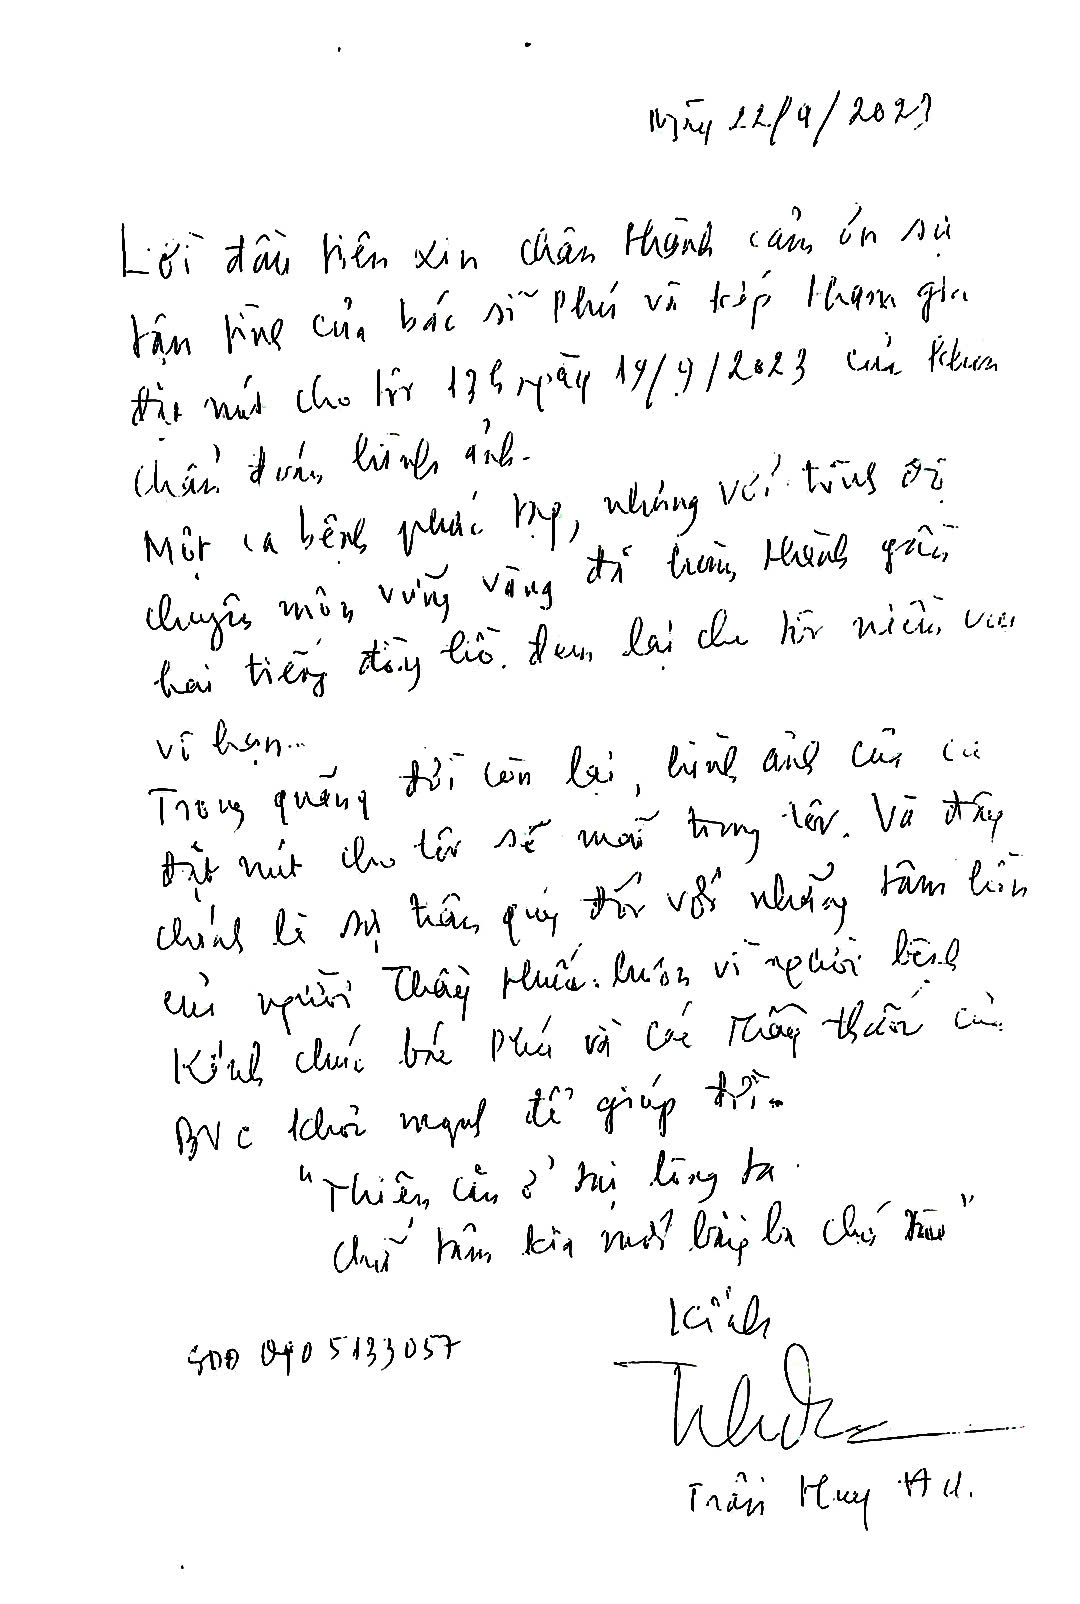 Ngày 22/9/2023
Lời đầu tiên xin chân thành cảm ơn sự
tận tình của bác sĩ Phú và kíp tham gia
đặt nút cho tôi 13h ngày 19/9/2023 của khoa
chẩn đoán hình ảnh.
Một ca bệnh phức tạp, nhưng với trình độ
chuyên môn vững vàng đã hoàn thành gần
hai tiếng đồng hồ. Đem lại cho tôi niềm vui
vô hạn...
Trong quãng đời còn lại, hình ảnh của ca
đặt nút cho tôi sẽ mãi trong tôi. Và đây
chính là sự trân quý đối với những tâm hồn
của người Thầy thuốc luôn vì người bệnh
Kính chúc bác Phú và các Thầy thuốc của
BVC khỏe mạnh để giúp đời.
"Thiện căn ở tại lòng ta
Chữ tâm kia mới bằng ba chữ tài"
Kính
SĐĐ 0905133057
Trần Huy